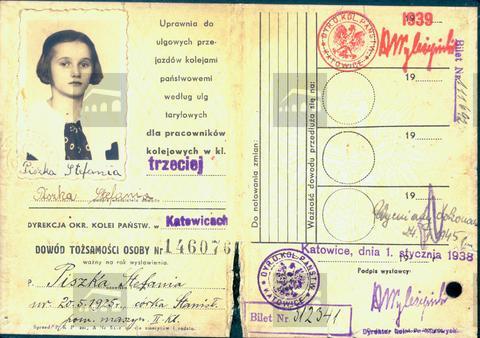 Uprawnia do
ulgowych prze-
jazdów kolejami
państwowemi
według ulg
taryfowych
dla pracowników
kolejowych w kl.
trzeciej
Piszka Stefania
Stefania
DYREKCJA OKR. KOLEI PAŃSTW. w Katowicach
DOWÓD TOŻSAMOŚCI OSOBY Nr 146076
ważny na rok wystawienia.
P. Piszka Stefania
ur. 20.5.1925. córka Stanisł.
pom. maszyn. II kl.
Do notowania zmian:
Ważność dowodu przedłuża się na:
DYR. OKR. KOL. PAŃSTW.
KATOWICE
1939
19
19
19
Bilet Nr
Katowice, dnia 1. stycznia 1938
DYR. OKR. KOL. PAŃSTW.
KATOWICE
Podpis wystawcy:
Bilet Nr. 312341